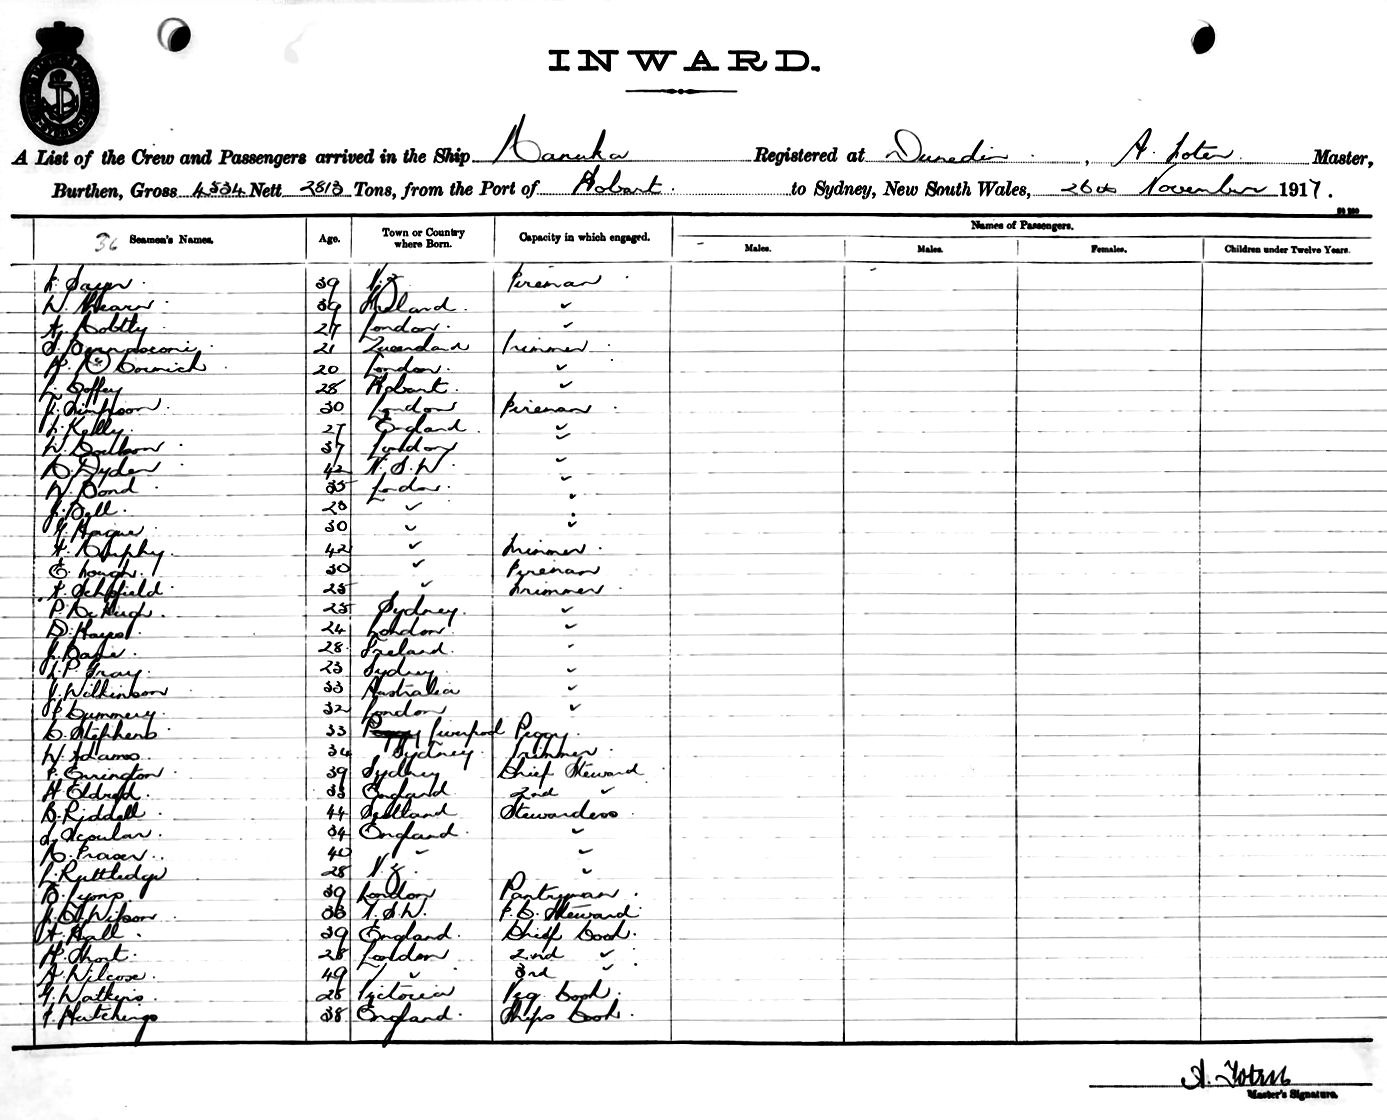 INWARD.
A List of the Crew and Passengers arrived in the Ship Manuka Registered at Dunedin, A. Master,
Burthen, Gross 4534 Nett 2813 Tons, from the Port of Hobart. to Sydney, New South Wales, 26th November 1917.
36 Seamen's Names. Age. Town or Country where Born. Capacity in which engaged. Names of Passengers.
Males. Males. Females. Children under Twelve Years.
39 N.Z. Fireman
W. 39 Ireland. "
27 London. "
21 Queensland Trimmer
McCormick 20 London. "
Coffey 28 Hobart. "
Simpson 30 London Fireman
Kelly. 27 England "
W. 37 London "
42 N.S.W. "
Bond 35 London. "
J. Bell. 23 " "
Hague 30 " "
Murphy. 42 " Trimmer
E. Lough. 30 " Fireman
25 " Trimmer
P. McHugh. 25 Sydney. "
D. Hayes. 24 London "
28 Ireland. "
J. P. Gray. 23 Sydney "
J. Wilkinson 33 Australia "
32 London "
C. Stephens 33 Liverpool Peggy.
W. Adams 34 Sydney. Trimmer
Errington 39 Sydney Chief Steward
H. Eldred. 35 England 2nd "
B. Riddell 44 Scotland Stewardess
34 England "
Fraser 40 " "
L. Ruttledge 28 N.Z. "
B. Lyons 39 London Pantryman
Wilson 38 N.S.W. F.C. Steward
A. Hall 39 England. Chief Cook.
Short. 28 London 2nd "
A. Wilcose. 49 " 3rd "
Watkins. 28 Victoria Veg Cook.
Hutchings 38 England. Ships Cook.
A.
Master's Signature.